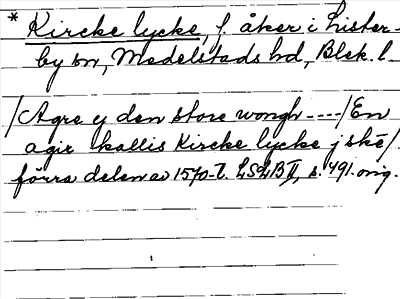 * Kircke lycke, f. åker i Lister-
by sn, Medelstads hd, Blek. l.
/Agre y den store wongh ----/En
agir kallis Kircke lycke j skē/
förra delen av 1570-t. LSLB II, s. 491. orig.